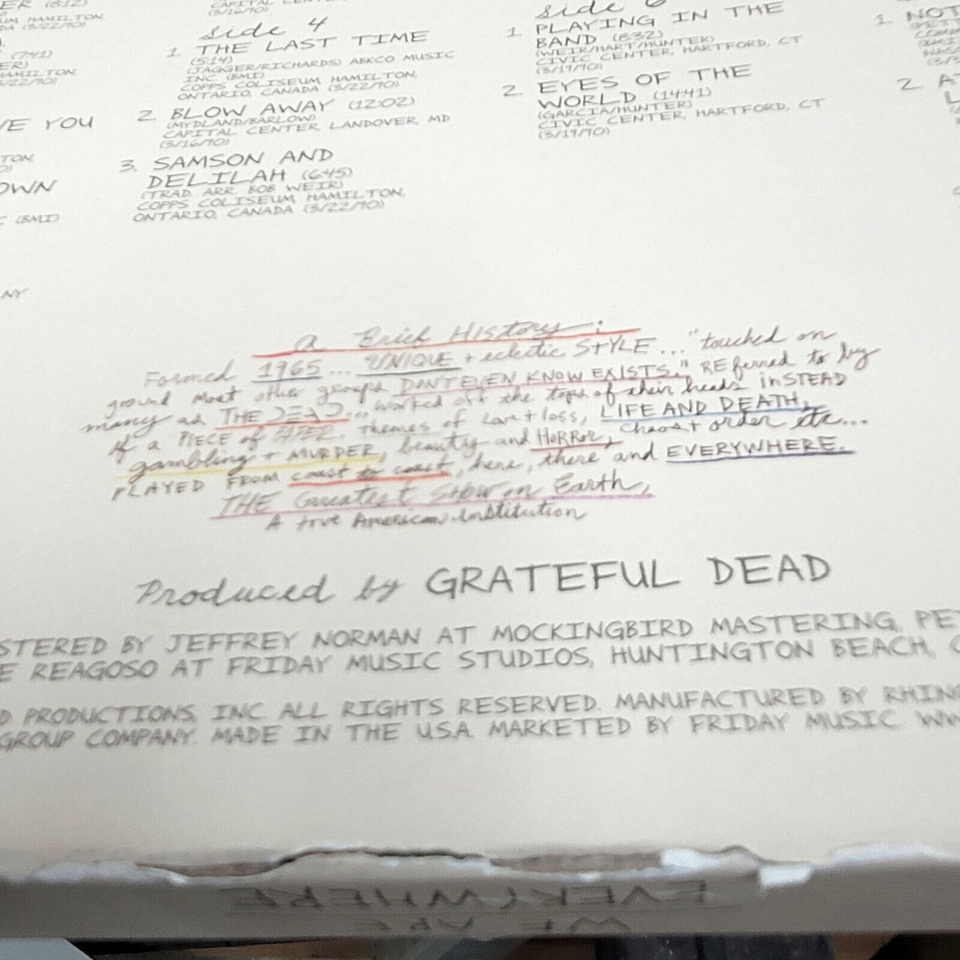 side 4
1. THE LAST TIME
(5:14)
(JAGGER/RICHARDS) ABKCO MUSIC
INC. (BMI)
COPPS COLISEUM HAMILTON,
ONTARIO, CANADA (3/22/90)
2. BLOW AWAY (12:02)
(MYDLAND/BARLOW)
CAPITAL CENTER LANDOVER, MD
(3/16/90)
3. SAMSON AND
DELILAH (6:45)
(TRAD. ARR. BOB WEIR)
COPPS COLISEUM HAMILTON,
ONTARIO, CANADA (3/22/90)
side 6
1. PLAYING IN THE
BAND (8:32)
(WEIR/HART/HUNTER)
CIVIC CENTER, HARTFORD, CT
(3/19/90)
2. EYES OF THE
WORLD (14:41)
(GARCIA/HUNTER)
CIVIC CENTER, HARTFORD, CT
(3/19/90)
1. NOT
2. A
VE YOU
OWN
(BMI)
NY
a Brief History:
Formed 1965... UNIQUE + eclectic STYLE... "touched on
ground most other groups DON'T EVEN KNOW EXISTS." REferred to by
many as THE DEAD... worked off the tops of their heads inSTEAD
of a PIECE of PAPER. themes of love + loss, LIFE AND DEATH,
gambling + MURDER, beauty and HORROR, chaos + order etc...
PLAYED FROM coast to coast, here, there and EVERYWHERE.
THE Greatest Show on Earth,
A true American Institution
Produced by GRATEFUL DEAD
STERED BY JEFFREY NORMAN AT MOCKINGBIRD MASTERING, PE
E REAGOSO AT FRIDAY MUSIC STUDIOS, HUNTINGTON BEACH, C
D PRODUCTIONS, INC. ALL RIGHTS RESERVED. MANUFACTURED BY RHIN
GROUP COMPANY. MADE IN THE U.S.A. MARKETED BY FRIDAY MUSIC. WW
EVERYWHERE
WE ARE